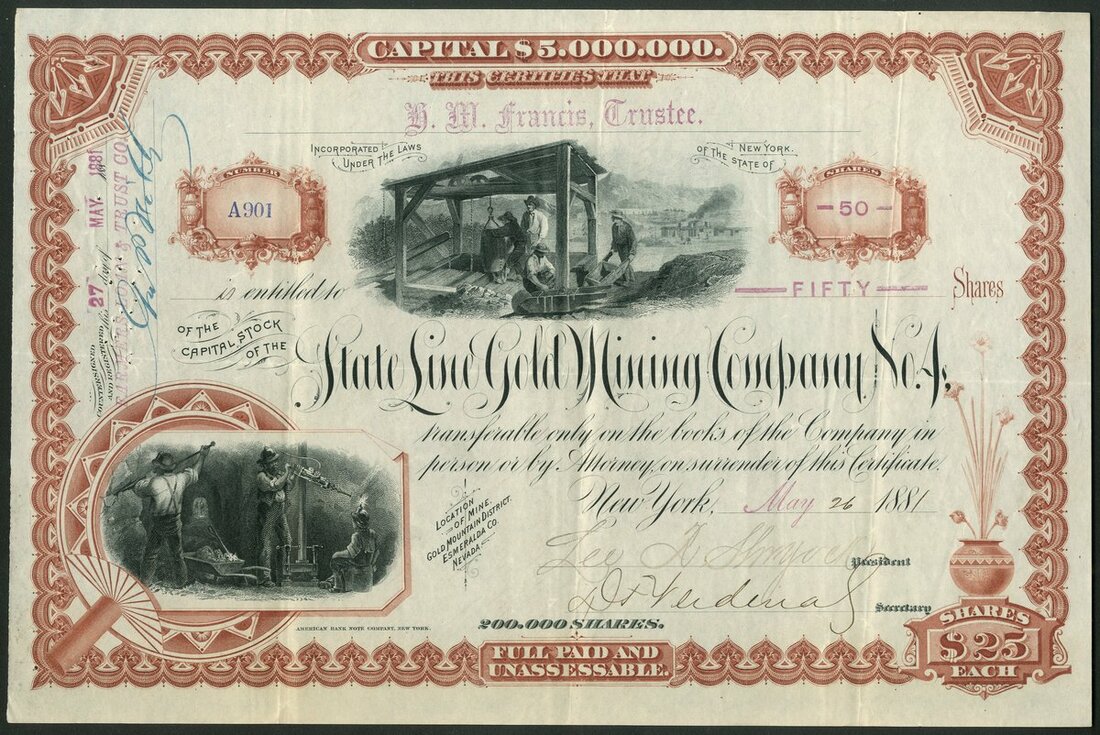 CAPITAL $5.000.000.
THIS CERTIFIES THAT
H. M. Francis, Trustee.
INCORPORATED UNDER THE LAWS
OF THE STATE OF NEW YORK.
NUMBER
A901
SHARES
-50-
is entitled to
FIFTY
Shares
OF THE CAPITAL STOCK OF THE
State Line Gold Mining Company No. 4,
transferable only on the books of the Company in
person or by Attorney, on surrender of this Certificate.
New York, May 26 1881
LOCATION
OF MINE.
GOLD MOUNTAIN DISTRICT.
ESMERALDA CO.
NEVADA.
President
Secretary
200.000 SHARES.
AMERICAN BANK NOTE COMPANY, NEW YORK.
FULL PAID AND
UNASSESSABLE.
SHARES
$25
EACH
COUNTERSIGNED
AND REGISTERED this 27 day of MAY. 1881
LOAN & TRUST CO.